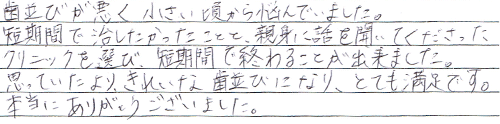 歯並びが悪く小さい頃から悩んでいました。
短期間で治したかったことと、親身に話を聞いてくださった
クリニックを選び、短期間で終わることが出来ました。
思っていたより、きれいな歯並びになり、とても満足です。
本当にありがとうございました。